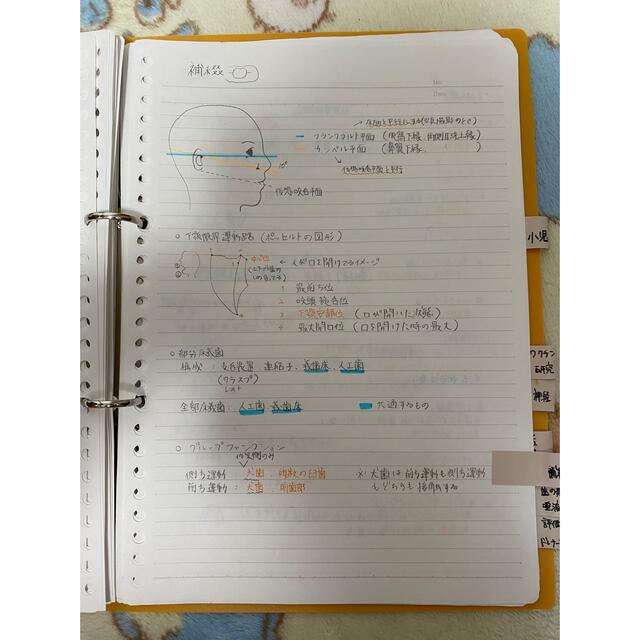 補綴
No.
Date
フランクフルト平面 (眼窩下縁、両側耳珠上縁)
カンペル平面 (鼻翼下縁、 )
仮想咬合平面と平行
10°
仮想咬合平面
○ 下顎限界運動路 (ポッセルトの図形)
← 人が口を開けてるイメージ
1 最前方位
2 咬頭嵌合位
3 下顎安静位 (口が開いた状態)
4 最大開口位 (口を開けた時の最大)
○ 部分床義歯
構成 : 支台装置、連結子、義歯床、人工歯
(クラスプ
レスト
全部床義歯 : 人工歯、義歯床 共通するもの
○ グループファンクション
作業側のみ
側方運動 犬歯、複数の臼歯 ※ 犬歯は前方運動も側方運動
前方運動 : 犬歯、前歯部 もどちらも接触する
小児
ワクチン
研究
神経
評価